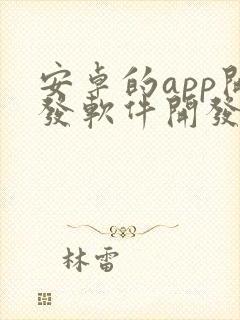 安卓的app開
發軟件開發
林雷